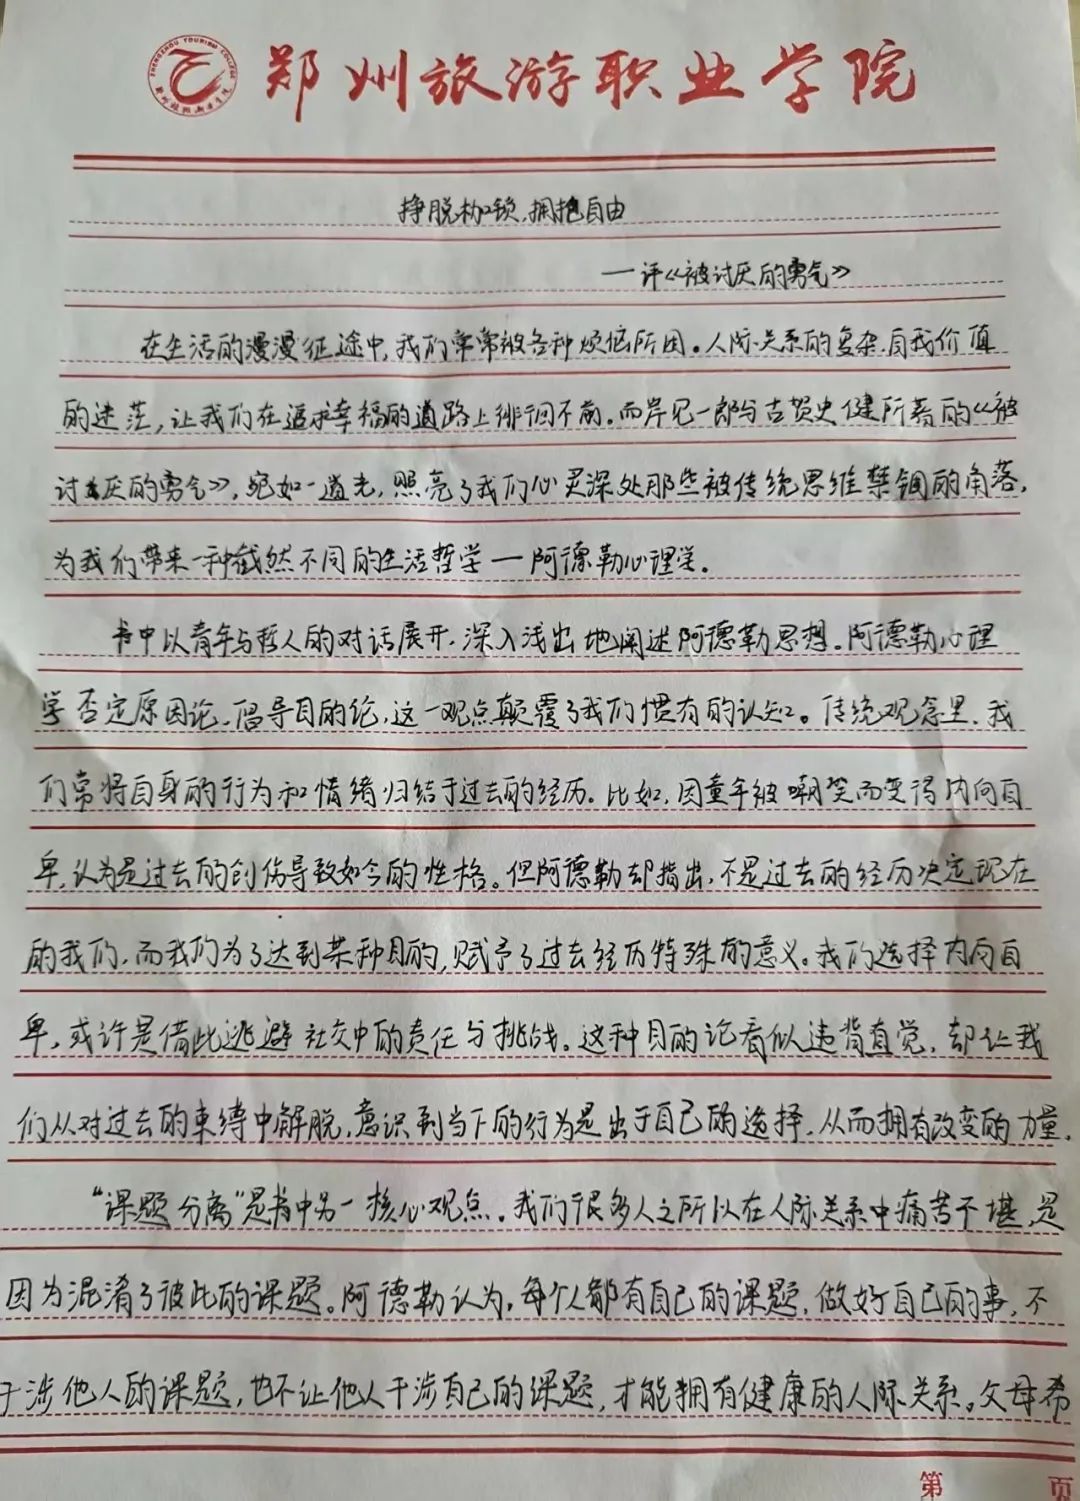 ZHENGZHOU TOURISM COLLEGE
郑州旅游职业学院
郑州旅游职业学院
挣脱枷锁,拥抱自由
—评《被讨厌的勇气》
在生活的漫漫征途中,我们常常被各种烦恼所困。人际关系的复杂,自我价值
的迷茫,让我们在追求幸福的道路上徘徊不前。而岸见一郎与古贺史健所著的《被
讨厌的勇气》,宛如一道光,照亮了我们心灵深处那些被传统思维禁锢的角落,
为我们带来一种截然不同的生活哲学—阿德勒心理学。
书中以青年与哲人的对话展开,深入浅出地阐述阿德勒思想。阿德勒心理
学否定原因论,倡导目的论,这一观点颠覆了我们惯有的认知。传统观念里,我
们常将自身的行为和情绪归结于过去的经历。比如,因童年被嘲笑而变得内向自
卑,认为是过去的创伤导致如今的性格。但阿德勒却指出,不是过去的经历决定现在
的我们,而我们为了达到某种目的,赋予了过去经历特殊的意义。我们选择内向自
卑,或许是借此逃避社交中的责任与挑战。这种目的论看似违背直觉,却让我
们从对过去的束缚中解脱,意识到当下的行为是出于自己的选择,从而拥有改变的力量。
“课题分离”是书中另一核心观点。我们很多人之所以在人际关系中痛苦不堪,是
因为混淆了彼此的课题。阿德勒认为,每个人都有自己的课题,做好自己的事,不
干涉他人的课题,也不让他人干涉自己的课题,才能拥有健康的人际关系。父母希
第 页